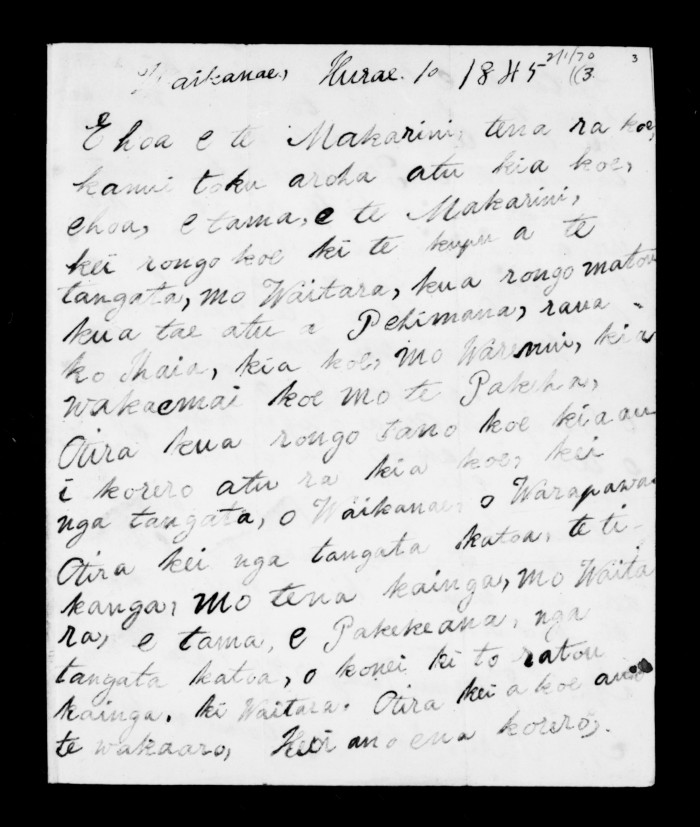 Waikanae, Hurae. 10 1845 3
E hoa e te Makarini, tena ra koe,
kanui toku aroha atu kia koe,
ehoa, e tama, e te Makarini,
kei rongo koe ki te kupu a te
tangata, mo Waitara, kua rongo matou
kua tae atu a Pehimana, raua
ko Ihaia, kia koe, mo kia
wakaemai koe mo te Pakeha,
Otira kua rongo tano koe kia au
i korero atu ra kia koe, kei
nga tangata, o Waikanae, o Warapawa.
Otira kei nga tangata katoa, te ti-
kanga, mo tena kainga, mo Waita
ra, e tama, e Pakekeana, nga
tangata katoa, o konei ki to ratou
kainga, ki Waitara. Otira kei a koe ano
te wakaaro, Heoi ano ena korero.